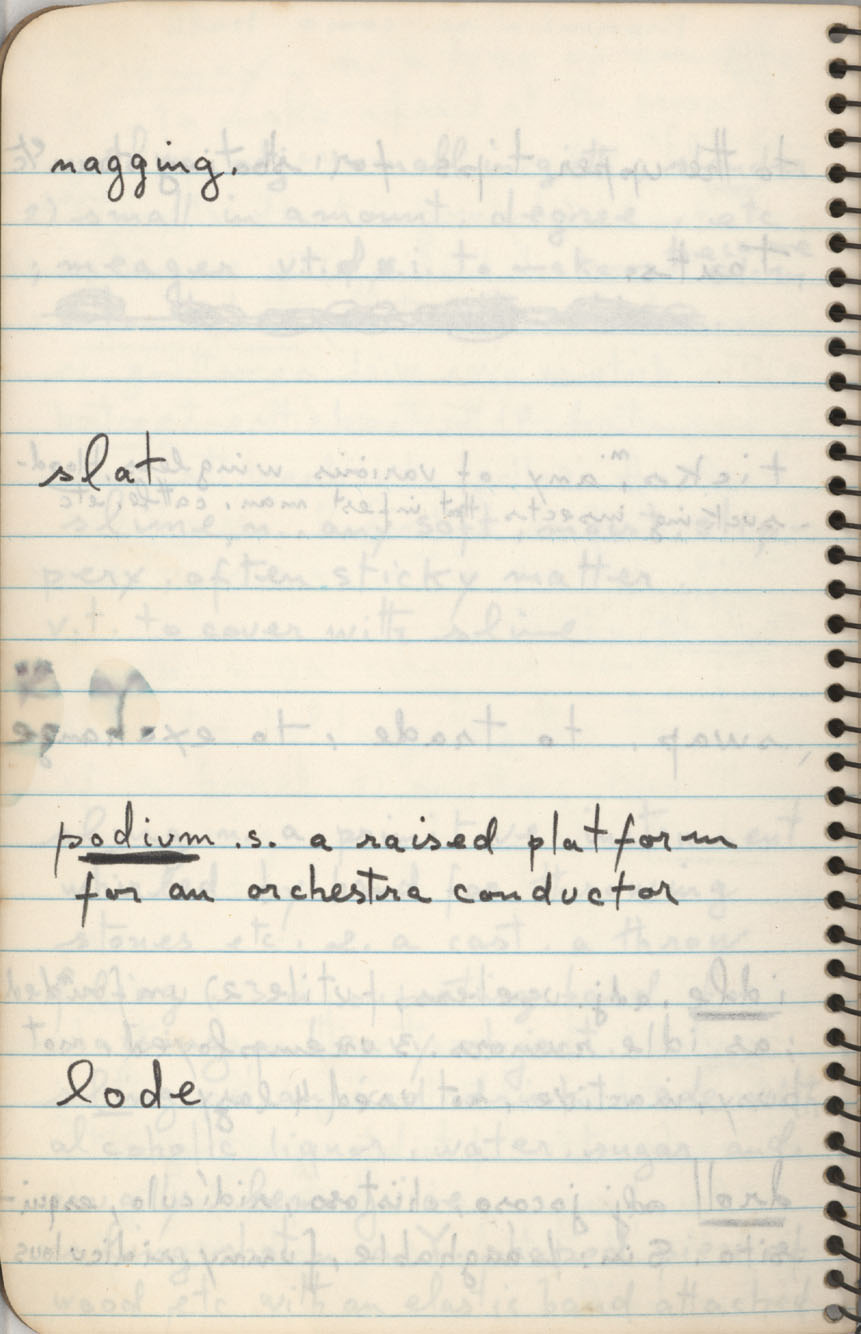 nagging.
slat
podium .s. a raised platform
for an orchestra conductor
lode